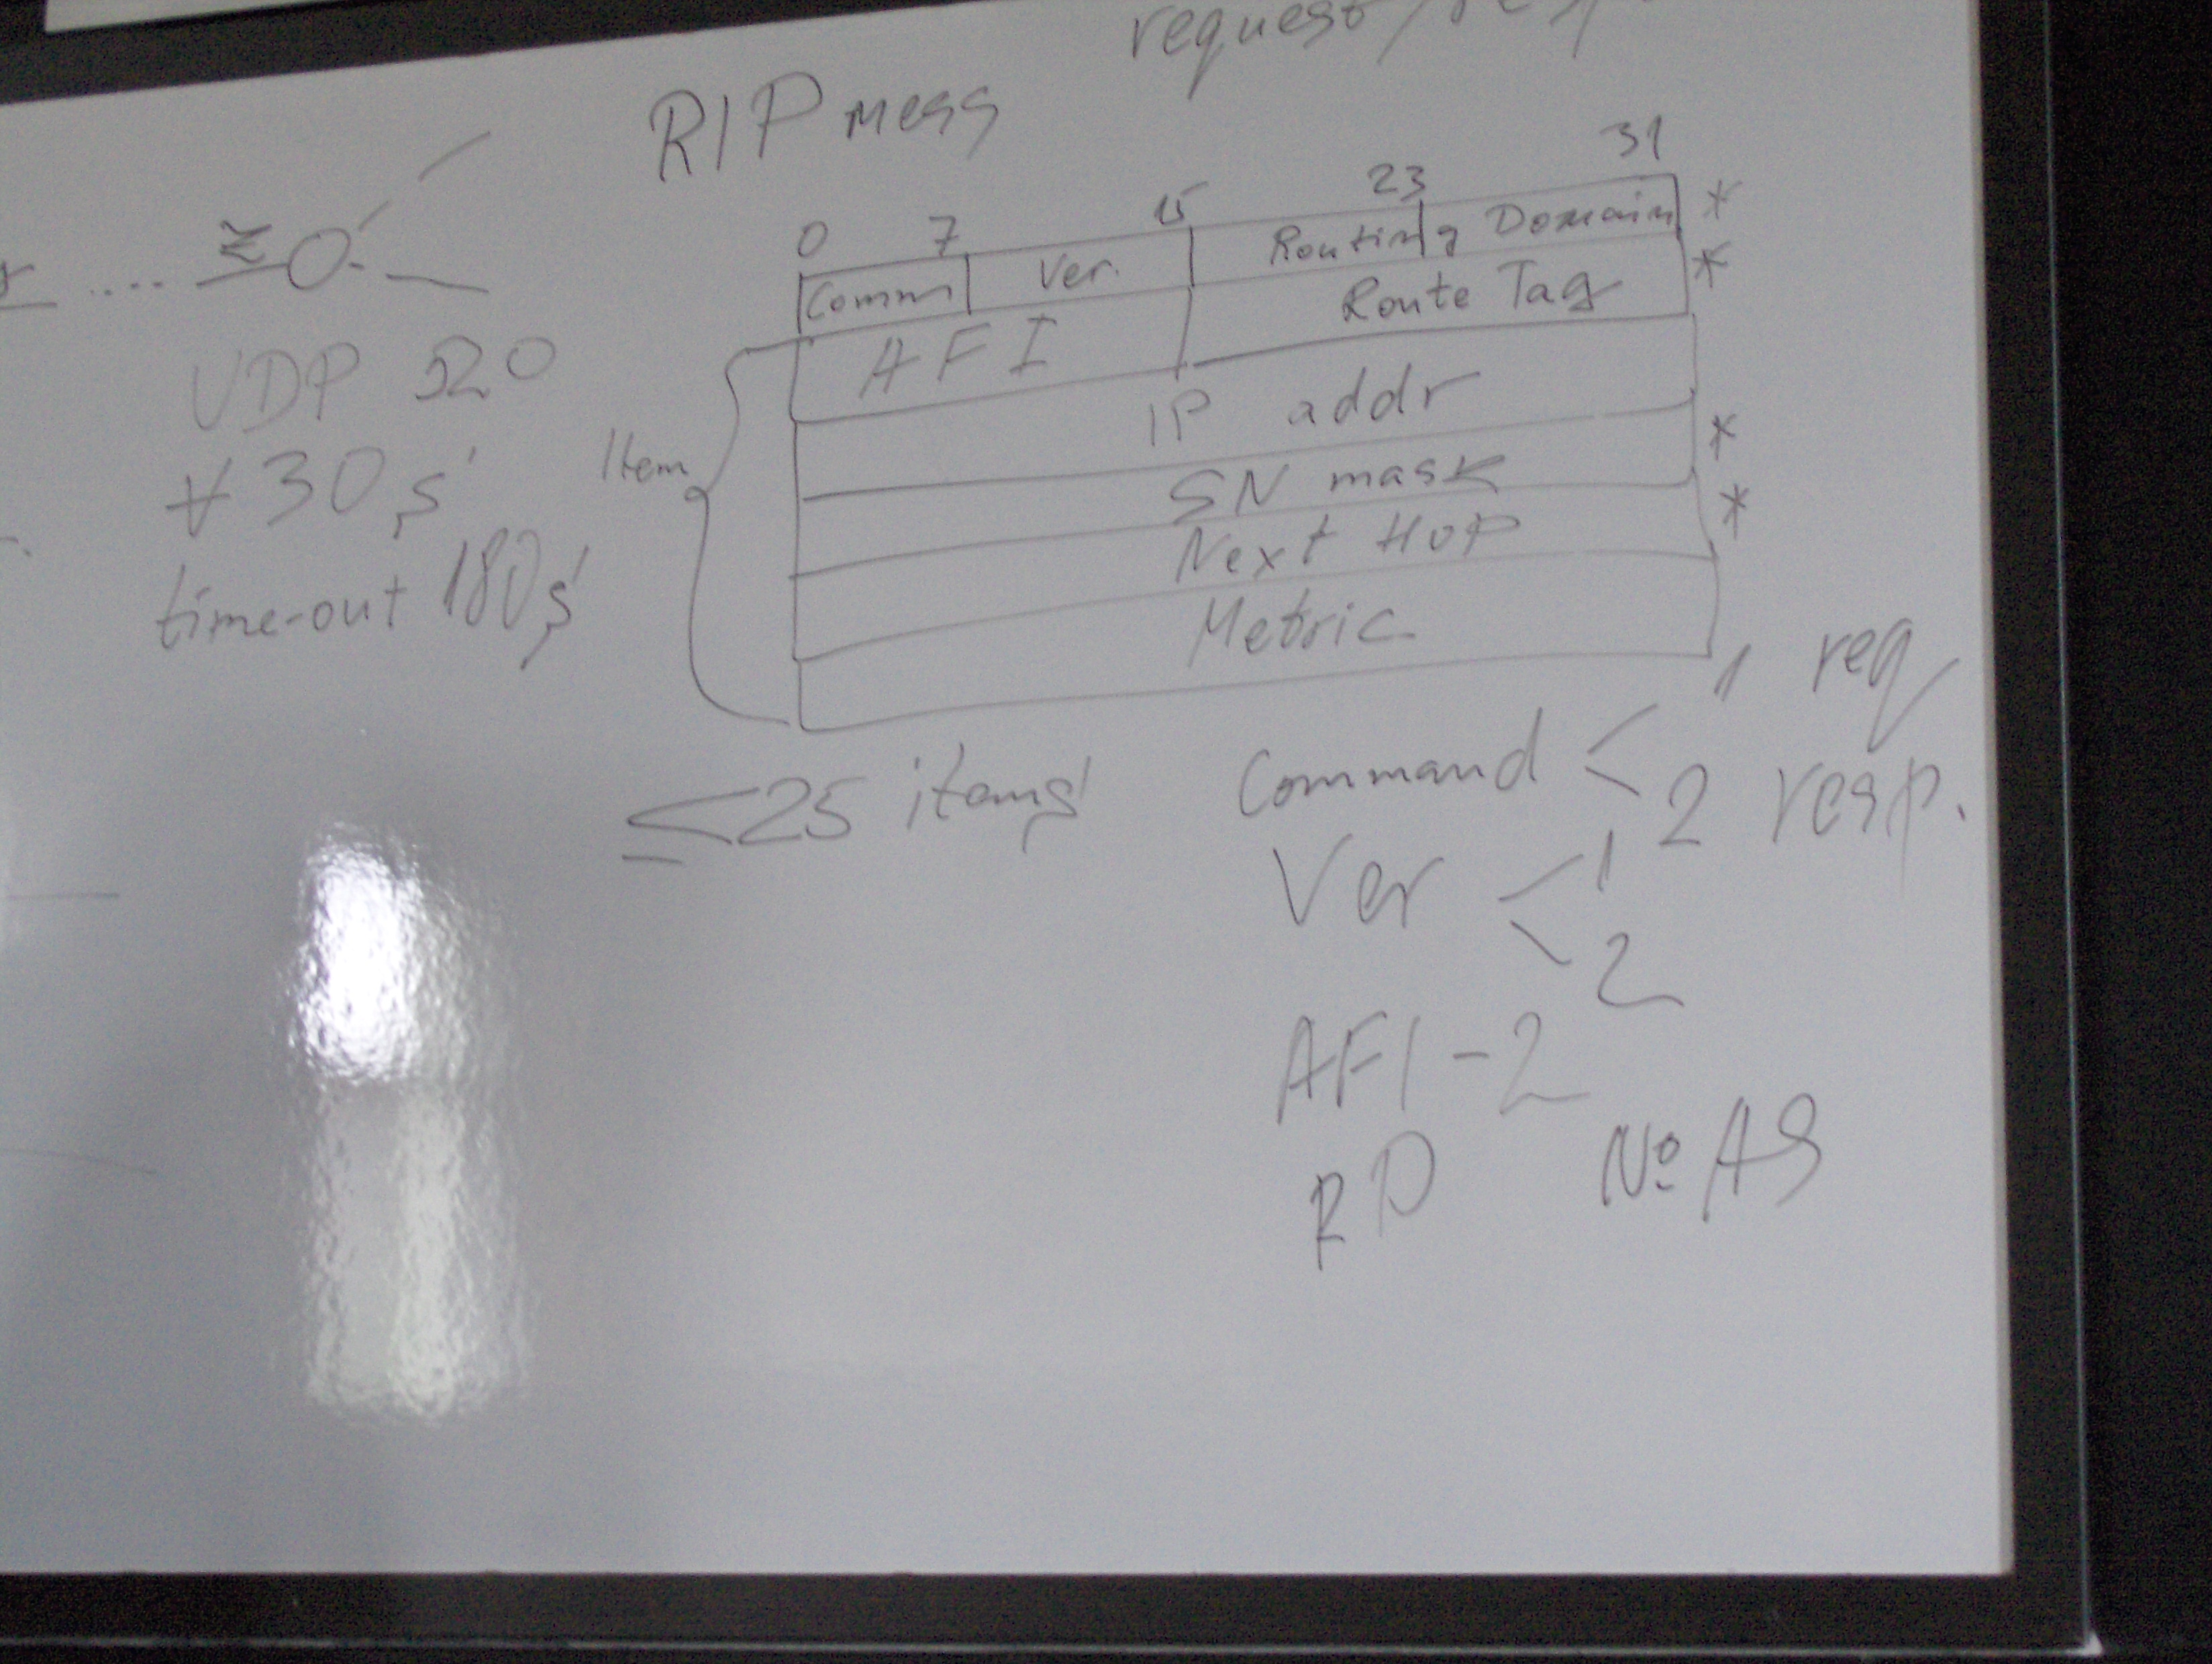 RIP mess
0 7 15 23 31
Comm Ver. Routing Domain *
AFI Route Tag *
IP addr
SN mask *
Next Hop *
Metric
Item
≤25 items
UDP 520
∀ 30s
time-out 180s
Command < 1 req
2 resp.
Ver < 1
2
AFI - 2
RD № AS
request/